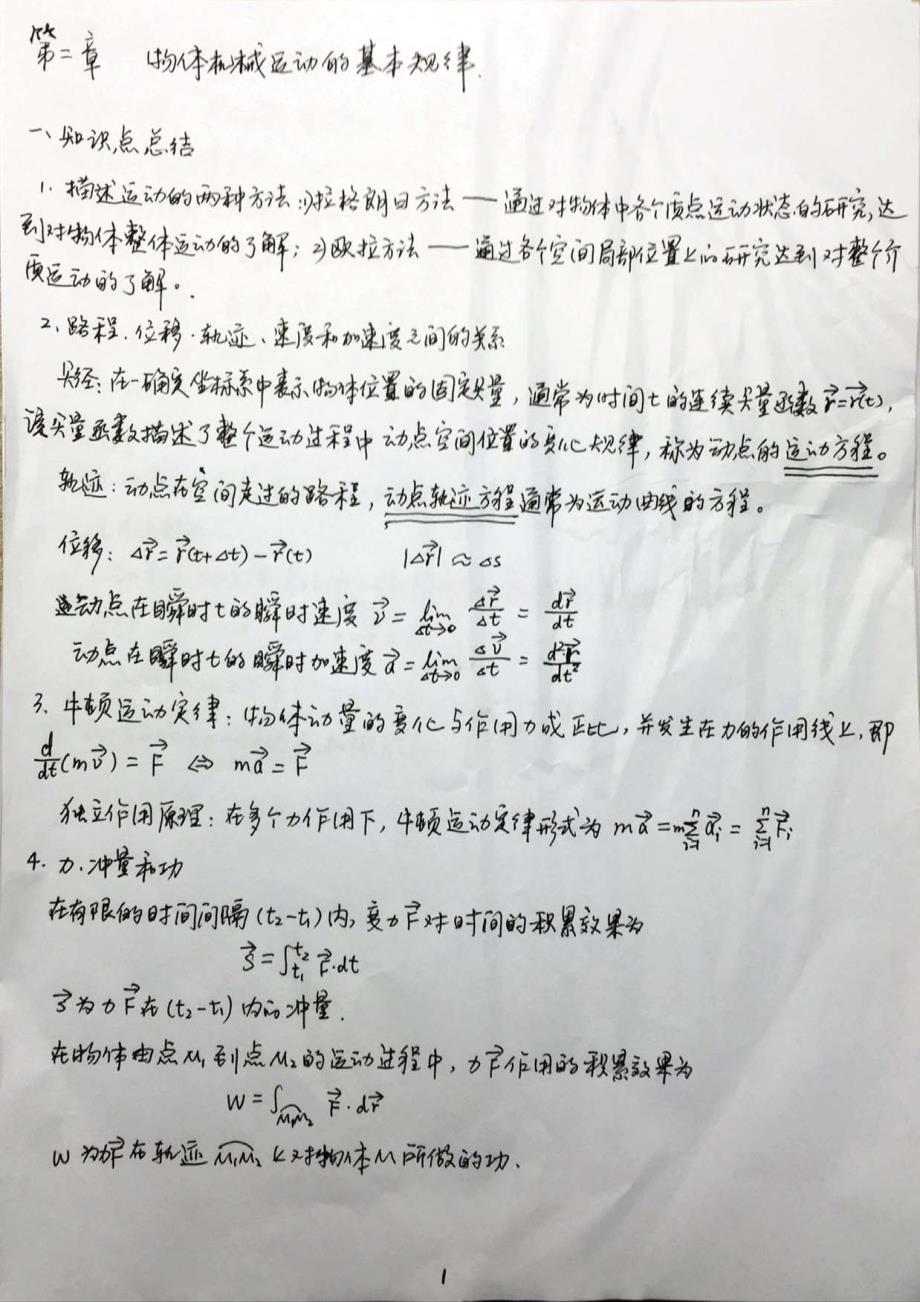 第二章 物体机械运动的基本规律.
一、知识点总结
1. 描述运动的两种方法:1)拉格朗日方法 —— 通过对物体中各个质点运动状态的研究,达
到对物体整体运动的了解; 2)欧拉方法 —— 通过各个空间局部位置上的研究达到对整个介
质运动的了解。
2. 路程、位移、轨迹、速度和加速度之间的关系
矢径: 在一确定坐标系中表示物体位置的固定矢量, 通常为时间t的连续矢量函数 r⃗=r⃗(t),
该矢量函数描述了整个运动过程中动点空间位置的变化规律, 称为动点的运动方程。
轨迹: 动点在空间走过的路程, 动点轨迹方程通常为运动曲线的方程。
位移: Δr⃗=r⃗(t+Δt)-r⃗(t) |Δr⃗|≈Δs
动点在瞬时t的瞬时速度 v⃗ = lim Δt→0 Δr⃗/Δt = dr⃗/dt
动点在瞬时t的瞬时加速度 a⃗ = lim Δt→0 Δv⃗/Δt = d²r⃗/dt²
3. 牛顿运动定律: 物体动量的变化与作用力成正比, 并发生在力的作用线上, 即
d/dt(mv⃗) = F⃗ ⇔ ma⃗ = F⃗
独立作用原理: 在多个力作用下, 牛顿运动定律形式为 ma⃗ = m∑ⁿᵢ₌₁a⃗ᵢ = ∑ⁿᵢ₌₁F⃗ᵢ
4. 力、冲量和功
在有限的时间间隔(t₂-t₁)内, 变力F⃗对时间的积累效果为
S⃗ = ∫ₜ₁ᵗ² F⃗·dt
S⃗为力F⃗在(t₂-t₁)内的冲量.
在物体由点M₁到点M₂的运动过程中, 力F⃗作用的积累效果为
W = ∫M₁M₂ F⃗·dr⃗
W为力F⃗在轨迹M₁M₂上对物体M所做的功.
1